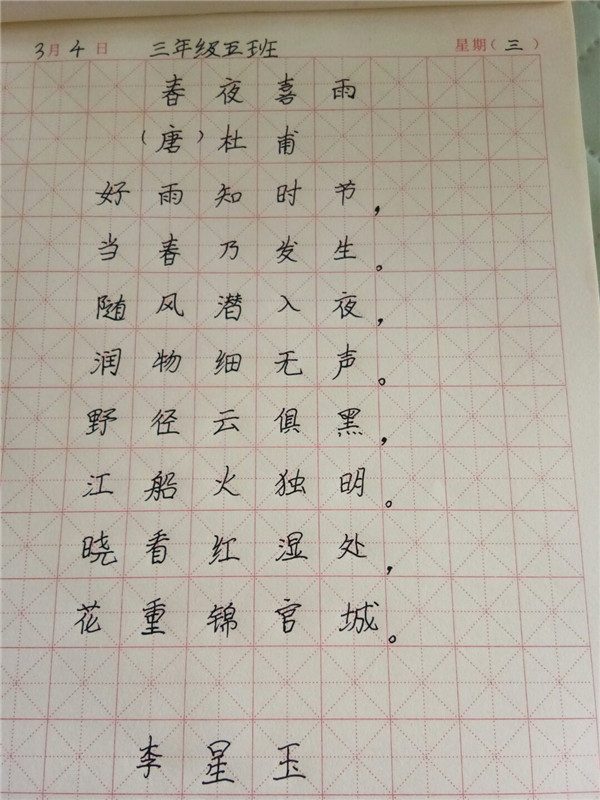 3月4日 三年级五班 星期(三)
春夜喜雨
(唐)杜甫
好雨知时节,
当春乃发生。
随风潜入夜,
润物细无声。
野径云俱黑,
江船火独明。
晓看红湿处,
花重锦官城。
李星玉